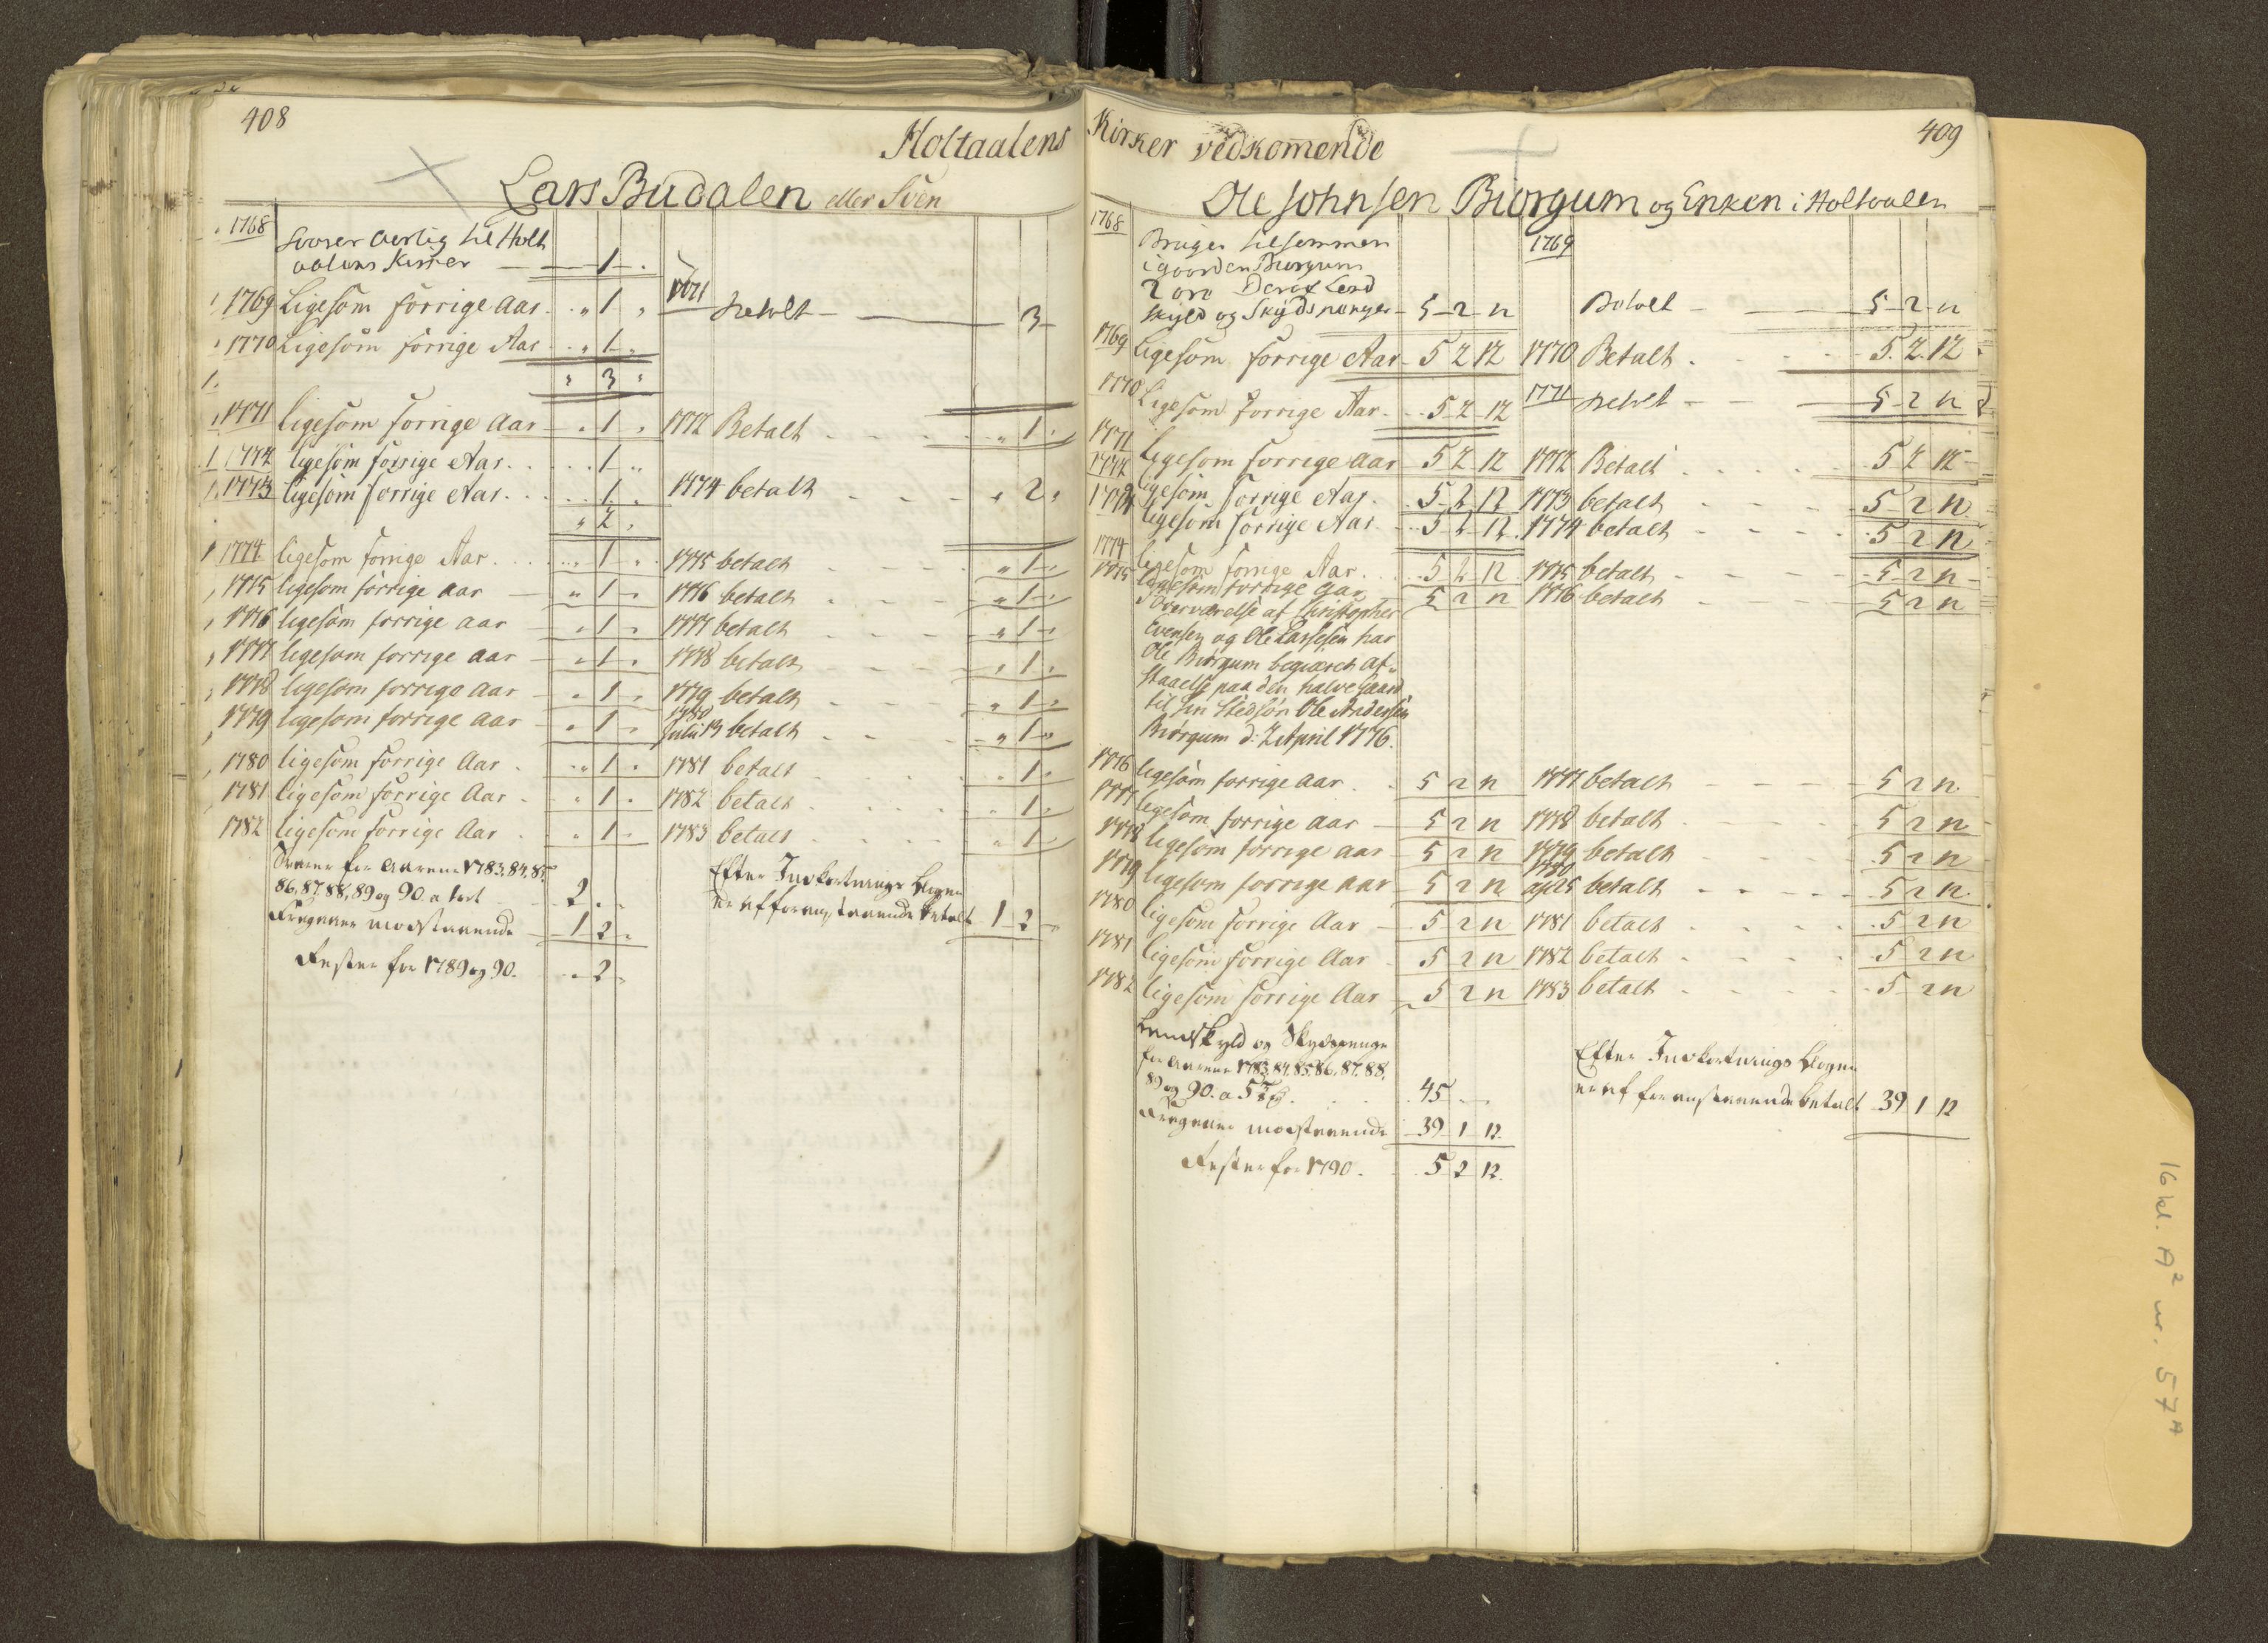 408
Holtaalens
Lars Budalen eller Sven
1768 Svarer aarlig til Holt
aalens Kirker — 1 -
1769 Ligesom forrige Aar . „ 1 „ 1771 betalt — 3 -
1770 Ligesom forrige Aar „ 1 „
„ 3 „
1771 ligesom forrige Aar „ 1 „ 1772 Betalt . . . „ 1 „
1772 ligesom forrige Aar . . . 1 „
1773 ligesom forrige Aar . . . 1 „ 1774 betalt . . . „ 2 „
„ 2 „
1774 ligesom forrige Aar . . . „ 1 „ 1775 betalt . . . „ 1 „
1775 ligesom forrige aar — „ 1 „ 1776 betalt . . . „ 1 „
1776 ligesom forrige aar — „ 1 „ 1777 betalt . . . „ 1 „
1777 ligesom forrige aar — „ 1 „ 1778 betalt . . . „ 1 „
1778 ligesom forrige aar — „ 1 „ 1779 betalt . . . „ 1 „
1780
1779 ligesom forrige aar — „ 1 „ Julii 13 betalt . . . „ 1 „
1780 ligesom forrige Aar . „ 1 „ 1781 betalt . . . „ 1 „
1781 ligesom forrige Aar . „ 1 „ 1782 betalt . . . „ 1 „
1782 ligesom forrige Aar . „ 1 „ 1783 betalt . . . „ 1 „
Svarer for Aarene 1783, 84, 85,
86, 87, 88, 89 og 90 a 1 ort 2 . .
Fragaaer modstaaende 1 2 „
Rester for 1789 og 90. „ 2 „
Efter Indkortnings Bogen
er af foranstaaende betalt 1 2 -
Kirker vedkomende
409
Ole Johnsen Biorgum og Enken i Holtaalen
1768 Bruger tilsammen
i gaarden Biorgum
2 øre Deraf Land
skyld og Skydspenger — 5 2 12 1769 Betalt — 5 2 12
1769 Ligesom forrige Aar — 5 2 12 1770 Betalt . . . 5. 2. 12
1770 Ligesom forrige Aar . . 5 2 12 1771 betalt — 5 2 12
1771 ligesom forrige aar — 5 2 12 1772 Betalt . . . 5 2 12
1772 ligesom forrige Aar . . 5 2 12 1773 betalt . . . 5 2 12
ligesom forrige Aar . . 5 2 12 1774 betalt . . . 5 2 12
1774 ligesom forrige Aar . . 5 2 12 1775 betalt . . . 5 2 12
1775 ligesom forrige aar 5 2 12 1776 betalt . . . 5 2 12
I Overværelse af Christopher
Evensen og Ole Larssen har
Ole Biørgum begiæret af-
staaelse paa den halve Gaard
til sin Stedsøn Ole Andersen
Biørgum d: 2 April 1776.
1776 ligesom forrige aar . . 5 2 12 1777 betalt . . . 5 2 12
1777 ligesom forrige aar — 5 2 12 1778 betalt . . . 5 2 12
1778 ligesom forrige aar — 5 2 12 1779 betalt . . . 5 2 12
1780
1779 ligesom forrige aar — 5 2 12 apr 25 betalt . . . 5 2 12
1780 ligesom forrige Aar — 5 2 12 1781 betalt . . . 5 2 12
1781 ligesom forrige Aar . 5 2 12 1782 betalt . . . 5 2 12
1782 ligesom forrige Aar — 5 2 12 1783 betalt . . . 5 2 12
Landskyld og Skydspenge
for Aarene 1783, 84, 85, 86, 87, 88,
89 og 90. a . . . 45 „ „
Fragaaer modstaaende 39 1 12
Rester for 1790. 5 2 12
Efter Indkortnings Bogen
er af foranstaaende betalt 39 1 12
16 kl. A² nr. 57 A